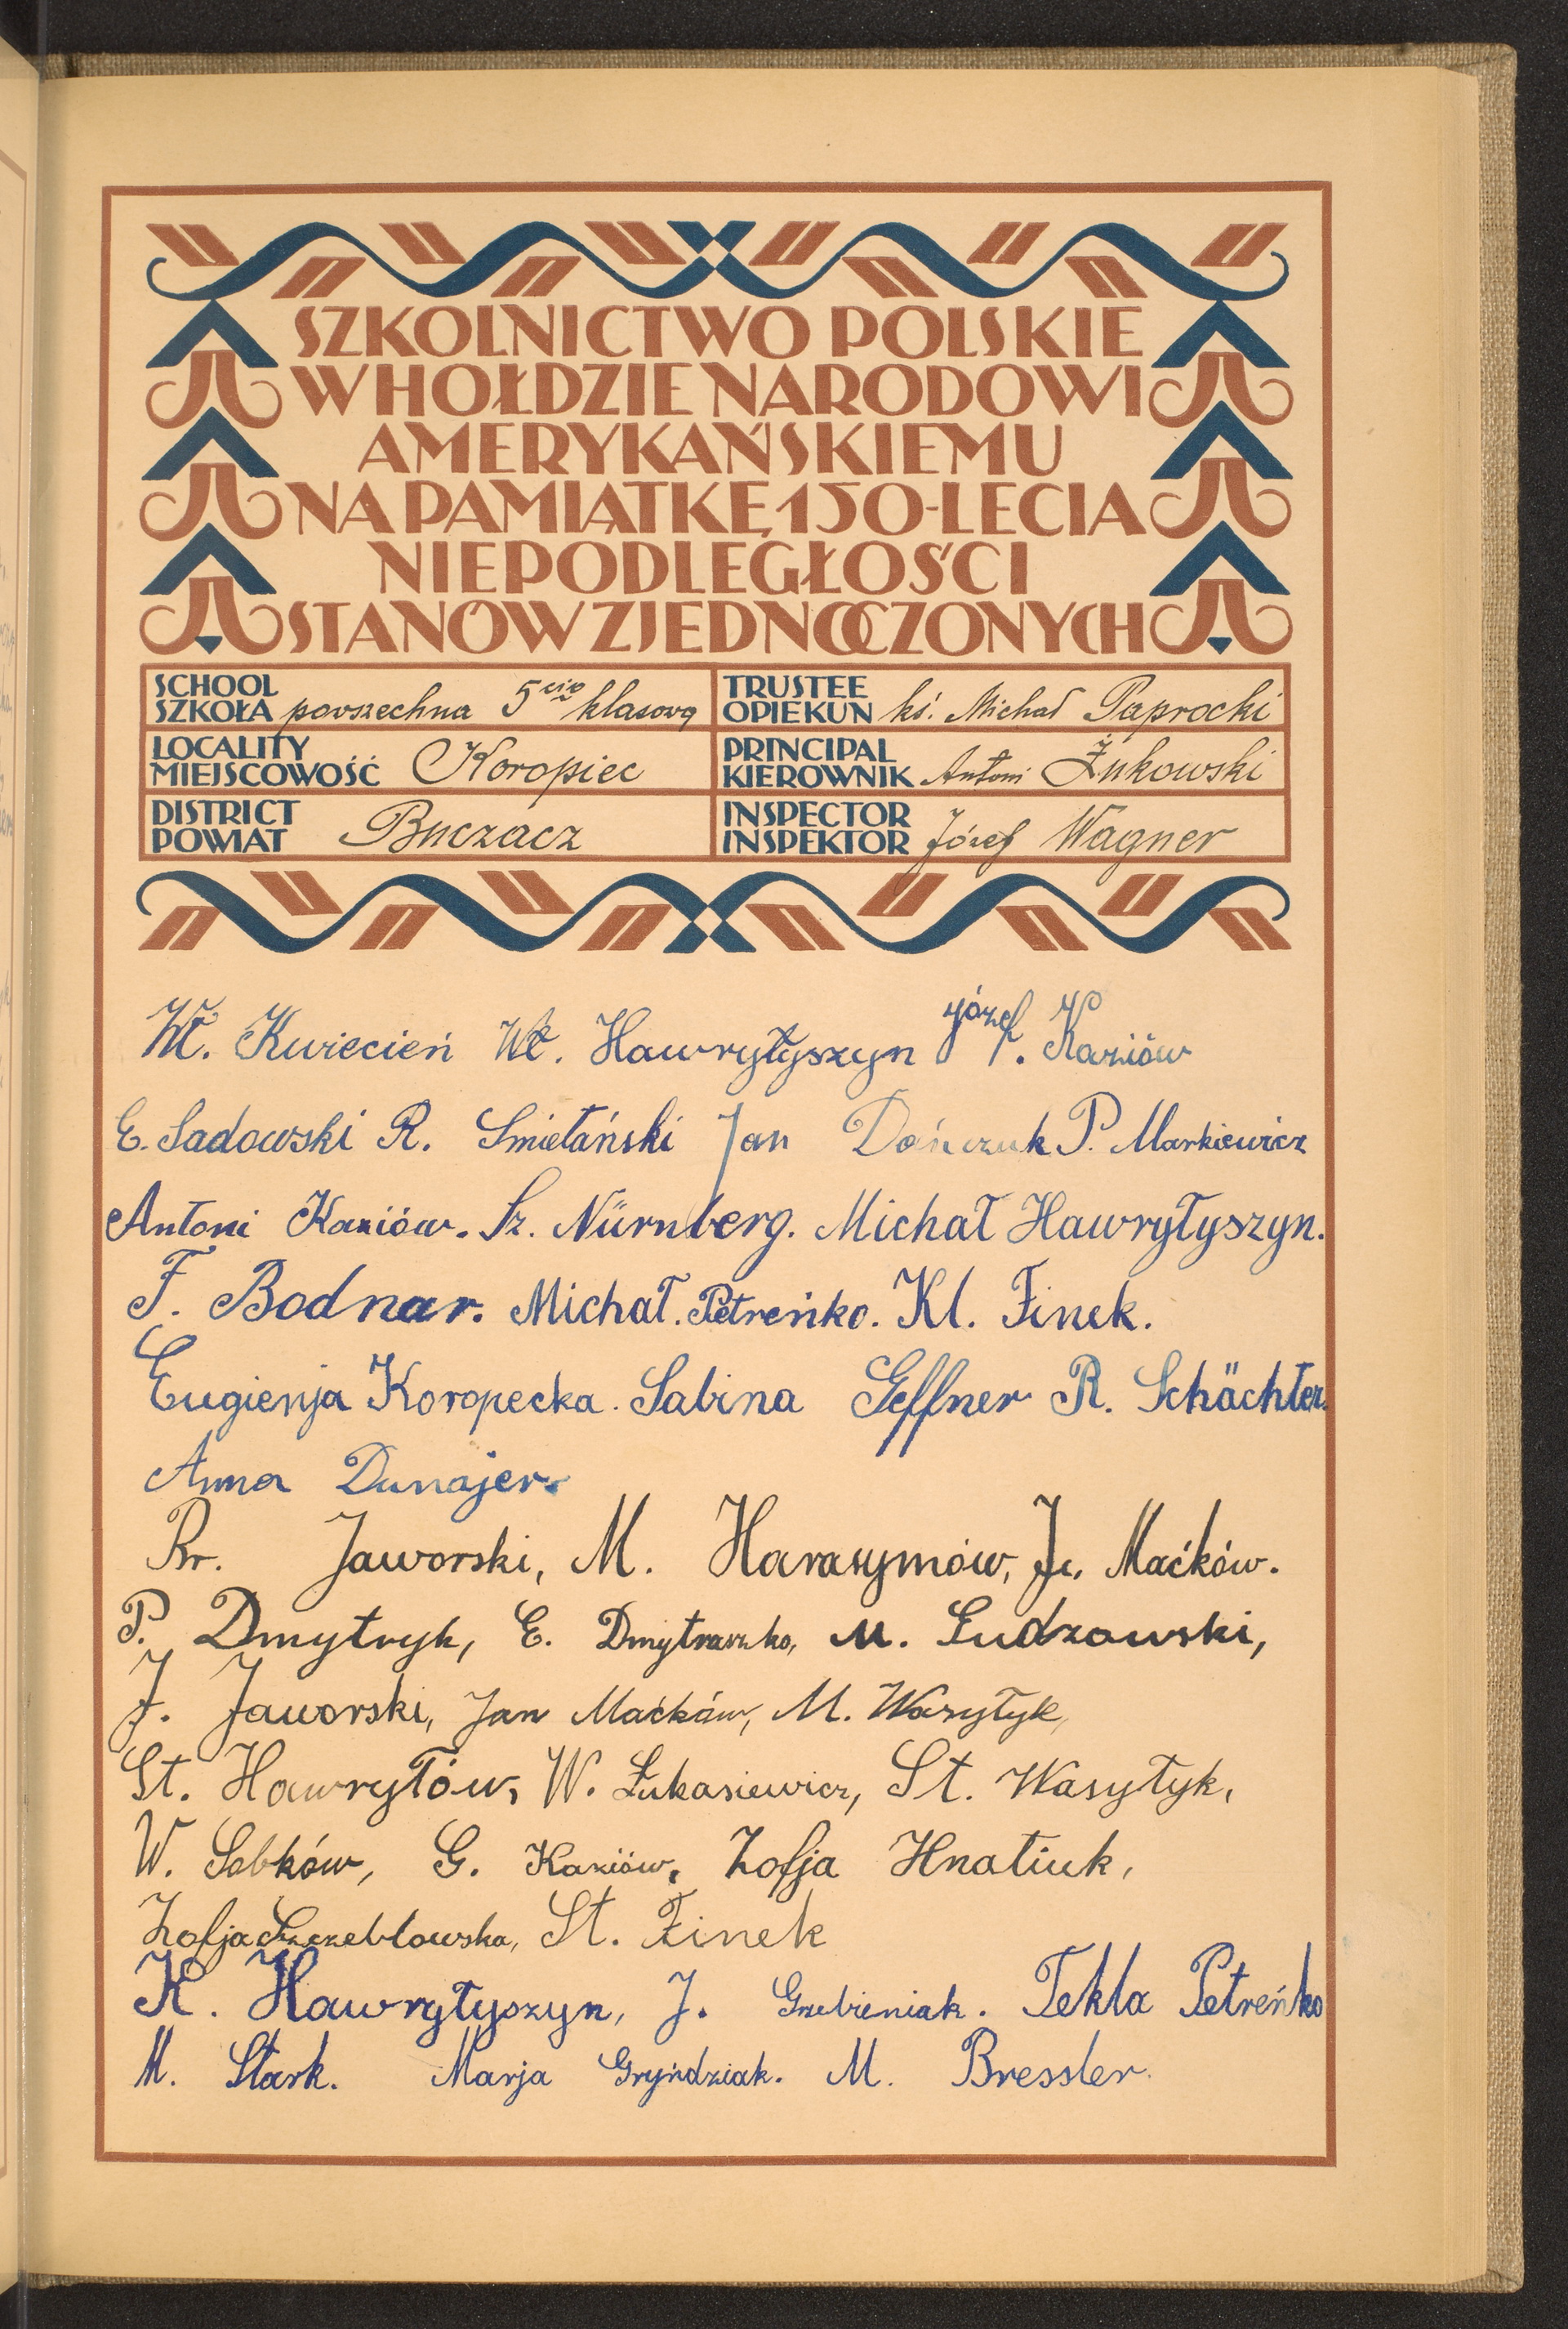 SZKOLNICTWO POLSKIE
W HOŁDZIE NARODOWI
AMERYKAŃSKIEMU
NA PAMIĄTKĘ 150-LECIA
NIEPODLEGŁOŚCI
STANÓW ZJEDNOCZONYCH
SCHOOL
SZKOŁA powszechna 5cio klasowa
TRUSTEE
OPIEKUN ks. Michał Paprocki
LOCALITY
MIEJSCOWOŚĆ Koropiec
PRINCIPAL
KIEROWNIK Antoni Żukowski
DISTRICT
POWIAT Buczacz
INSPECTOR
INSPEKTOR Józef Wagner
Wł. Kwiecień Wł. Hawryłyszyn Józef F. Kaziów
E. Sadowski R. Smietański Jan Dańczuk P. Markiewicz
Antoni Kaziów. Sz. Nürnberg. Michał Hawryłyszyn.
F. Bodnar. Michał. Petreńko. Kl. Finek.
Eugienja Koropecka. Sabina Geffner R. Schächter.
Anna Dunajer.
Br. Jaworski, M. Harasymów, Jr. Maćków.
P. Dmytryk, E. Dmytraszko, M. Ludzowski,
J. Jaworski, Jan Maćków, M. Wasyłyk,
St. Hawryłów, W. Łukasiewicz, St. Wasyłyk,
W. Sobków, G. Kaziów, Zofja Hnatiuk,
Zofja Szczebłowska, St. Finek
K. Hawryłyszyn, J. Grzebieniak. Tekla Petreńko
M. Stark. Marja Gryńdziak. M. Bressler.